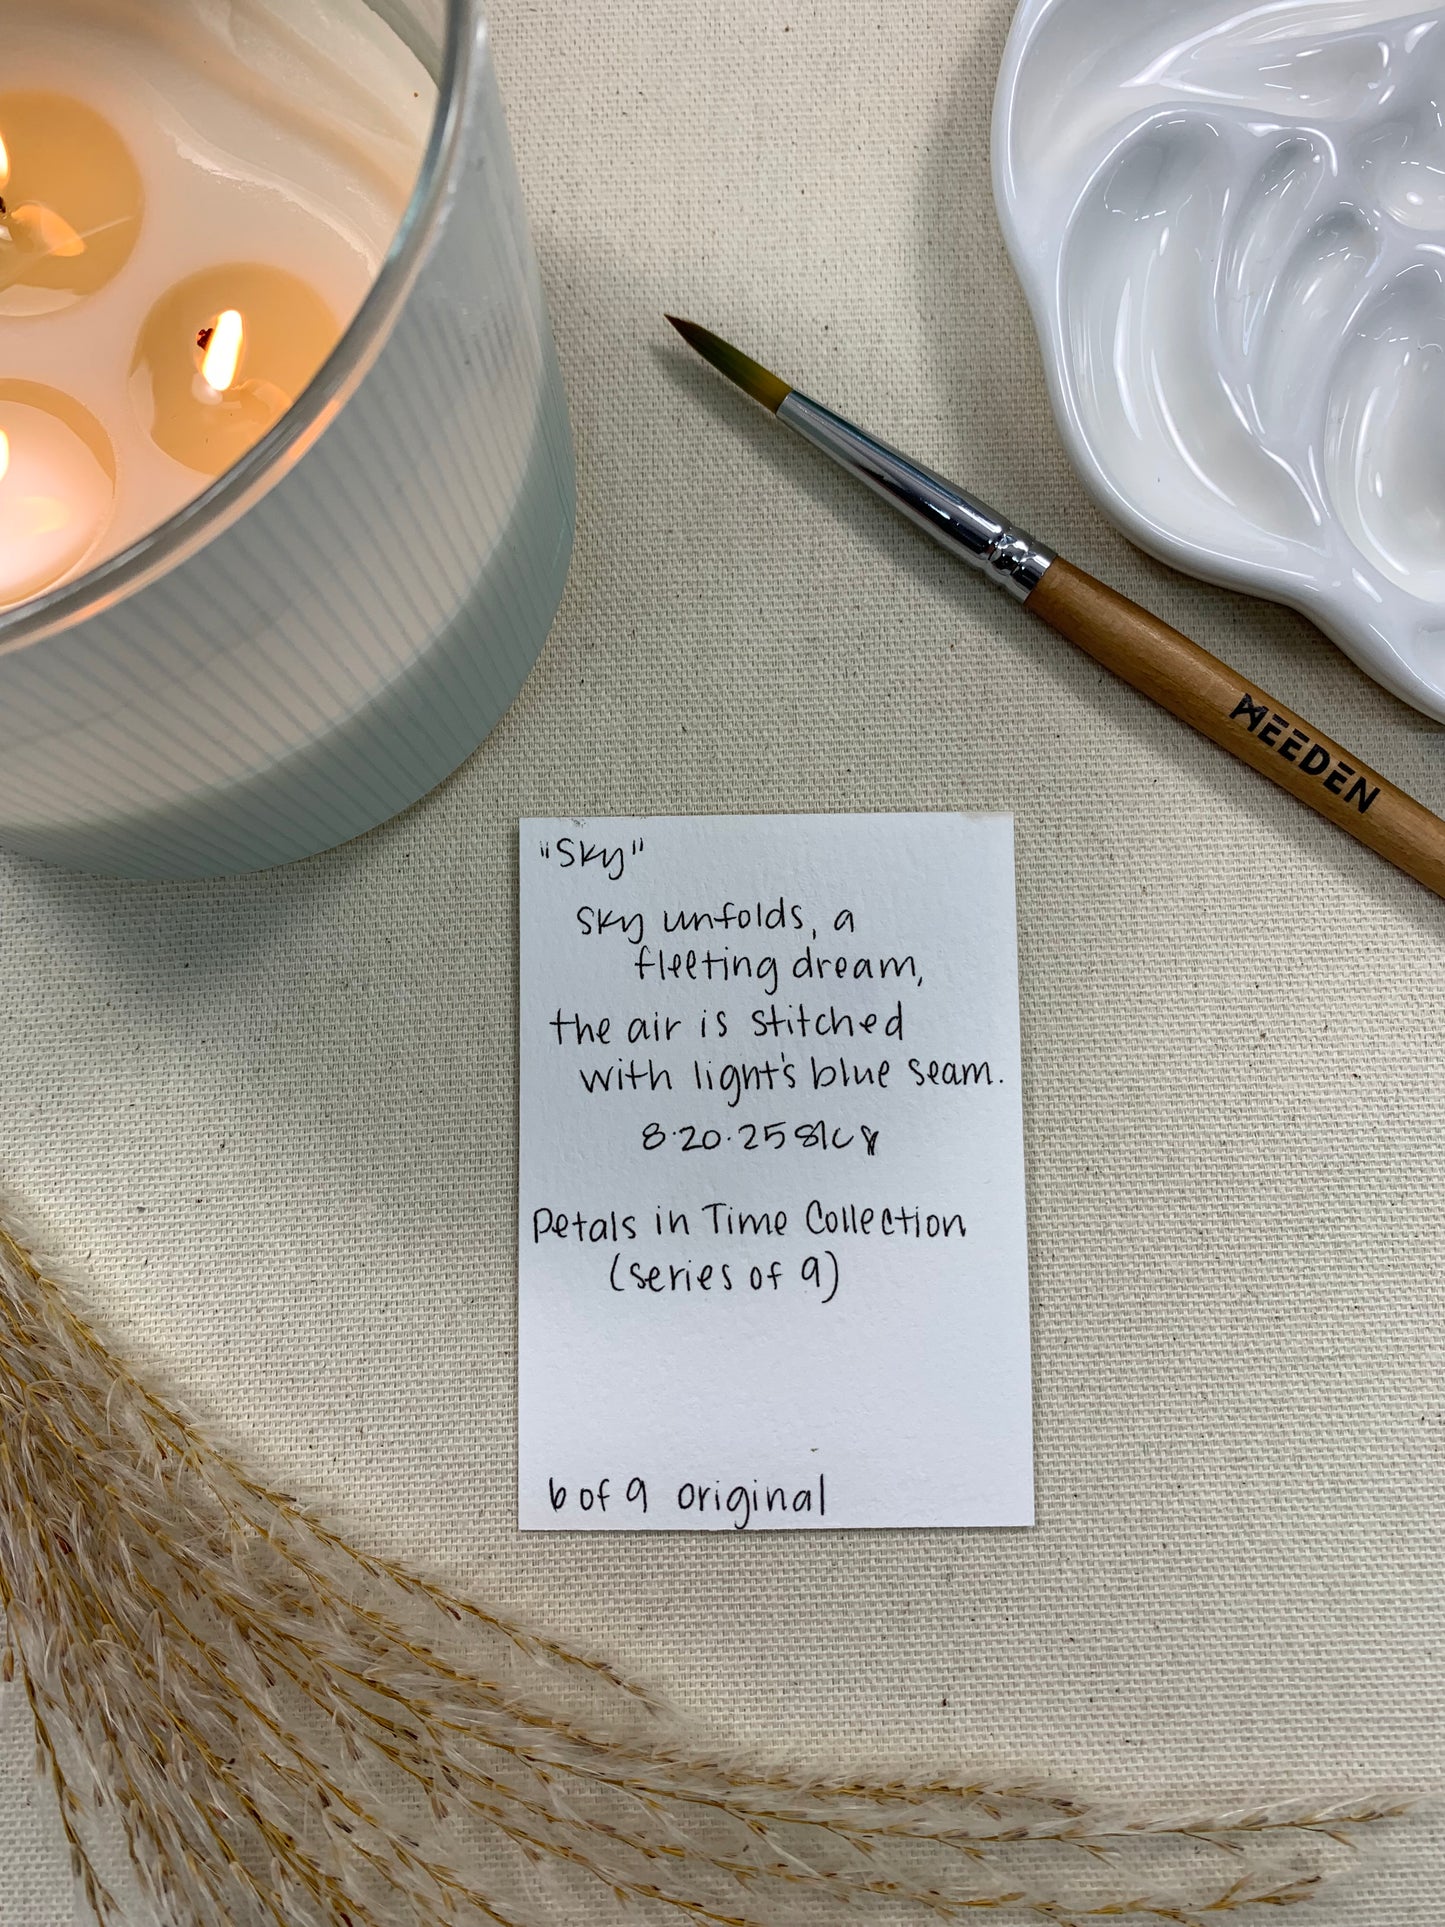 MEEDEN
"Sky"
Sky unfolds, a
fleeting dream,
the air is stitched
with light's blue seam.
8.20.25
Petals in Time Collection
(series of 9)
6 of 9 original